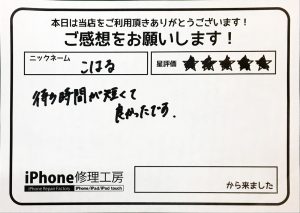 本日は当店をご利用頂きありがとうございます！
ご感想をお願いします！
ニックネーム
こはる
星評価 ★★★★★
待ち時間が短くて
良かったです。
iPhone修理工房
iPhone Repair Factory iPhone/iPad/iPod touch
から来ました